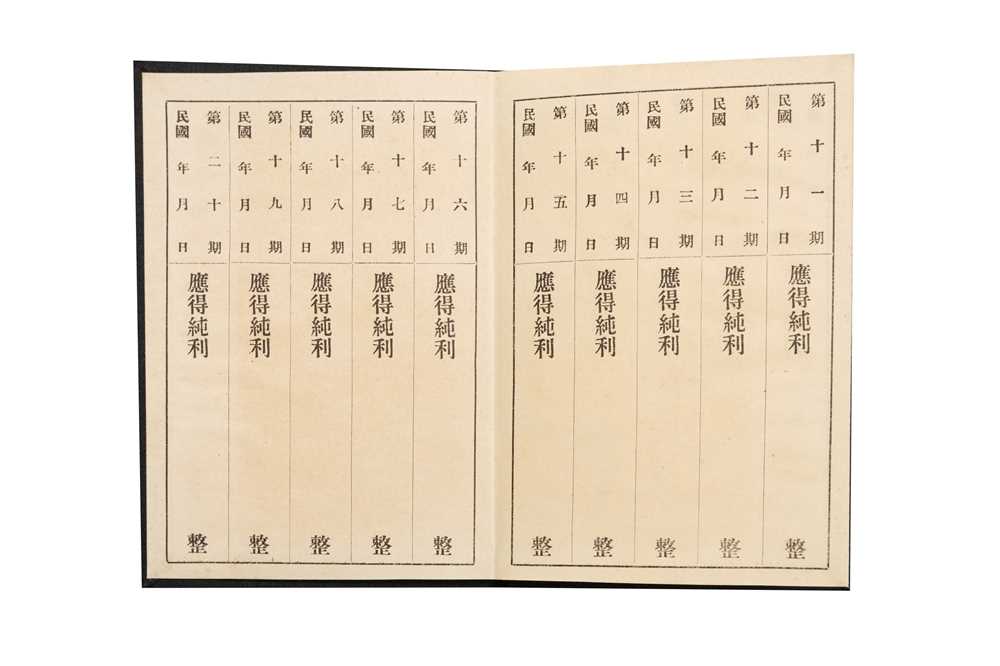 第十一期
民國 年 月 日
應得純利 整
第十二期
民國 年 月 日
應得純利 整
第十三期
民國 年 月 日
應得純利 整
第十四期
民國 年 月 日
應得純利 整
第十五期
民國 年 月 日
應得純利 整
第十六期
民國 年 月 日
應得純利 整
第十七期
民國 年 月 日
應得純利 整
第十八期
民國 年 月 日
應得純利 整
第十九期
民國 年 月 日
應得純利 整
第二十期
民國 年 月 日
應得純利 整